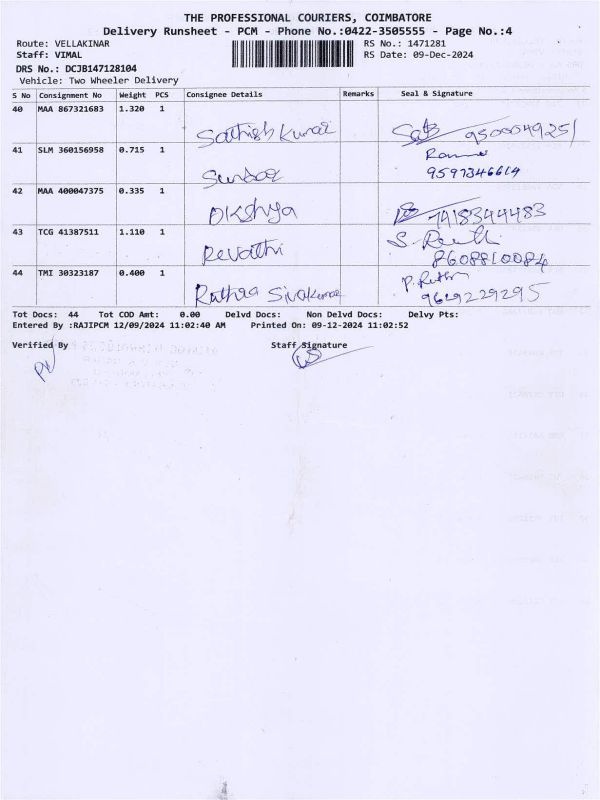 THE PROFESSIONAL COURIERS, COIMBATORE
Delivery Runsheet - PCM - Phone No.:0422-3505555 - Page No.:4
Route: VELLAKINAR RS No.: 1471281
Staff: VIMAL RS Date: 09-Dec-2024
DRS No.: DCJB147128104
Vehicle: Two Wheeler Delivery
S No Consignment No Weight PCS Consignee Details Remarks Seal & Signature
40 MAA 867321683 1.320 1
Sathish Kumar 9500049251
41 SLM 360156958 0.715 1
Sundar 9597346614
42 MAA 400047375 0.335 1
Dkshya 7418344483
43 TCG 41387511 1.110 1
Revathi 8608810084
44 TMI 30323187 0.400 1
Rathna Sivakumar 9629229295
Tot Docs: 44 Tot COD Amt: 0.00 Delvd Docs: Non Delvd Docs: Delvy Pts:
Entered By :RAJIPCM 12/09/2024 11:02:40 AM Printed On: 09-12-2024 11:02:52
Verified By Staff Signature